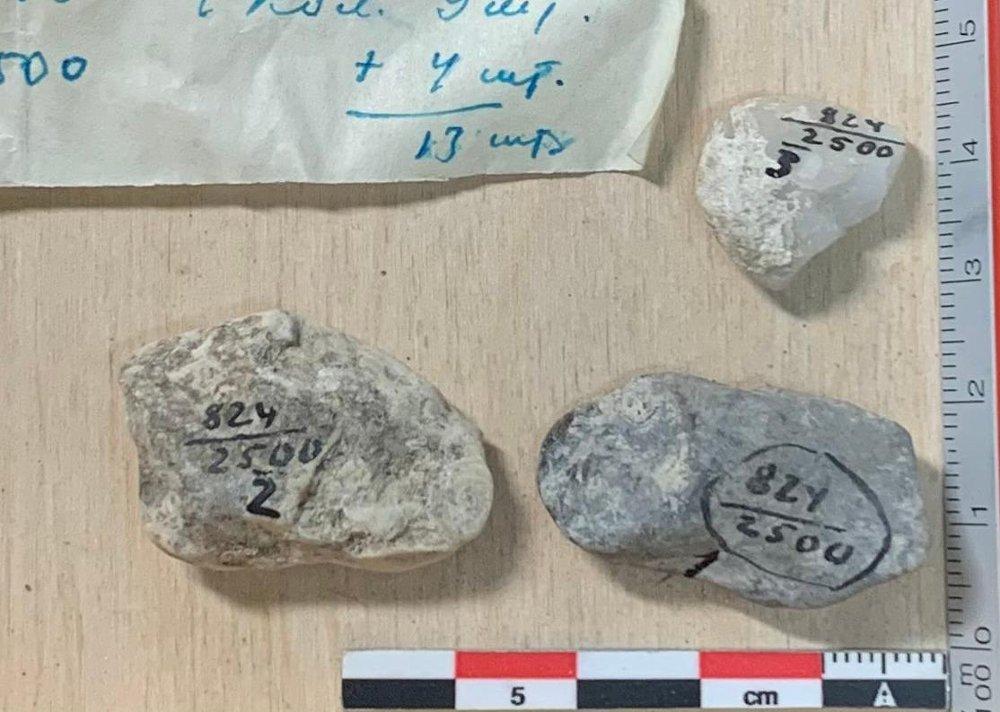 500
+ 4 шт.
13 шт
824
2500
3
824
2500
2
824
2500
1
5 cm
5
4
3
2
1
0